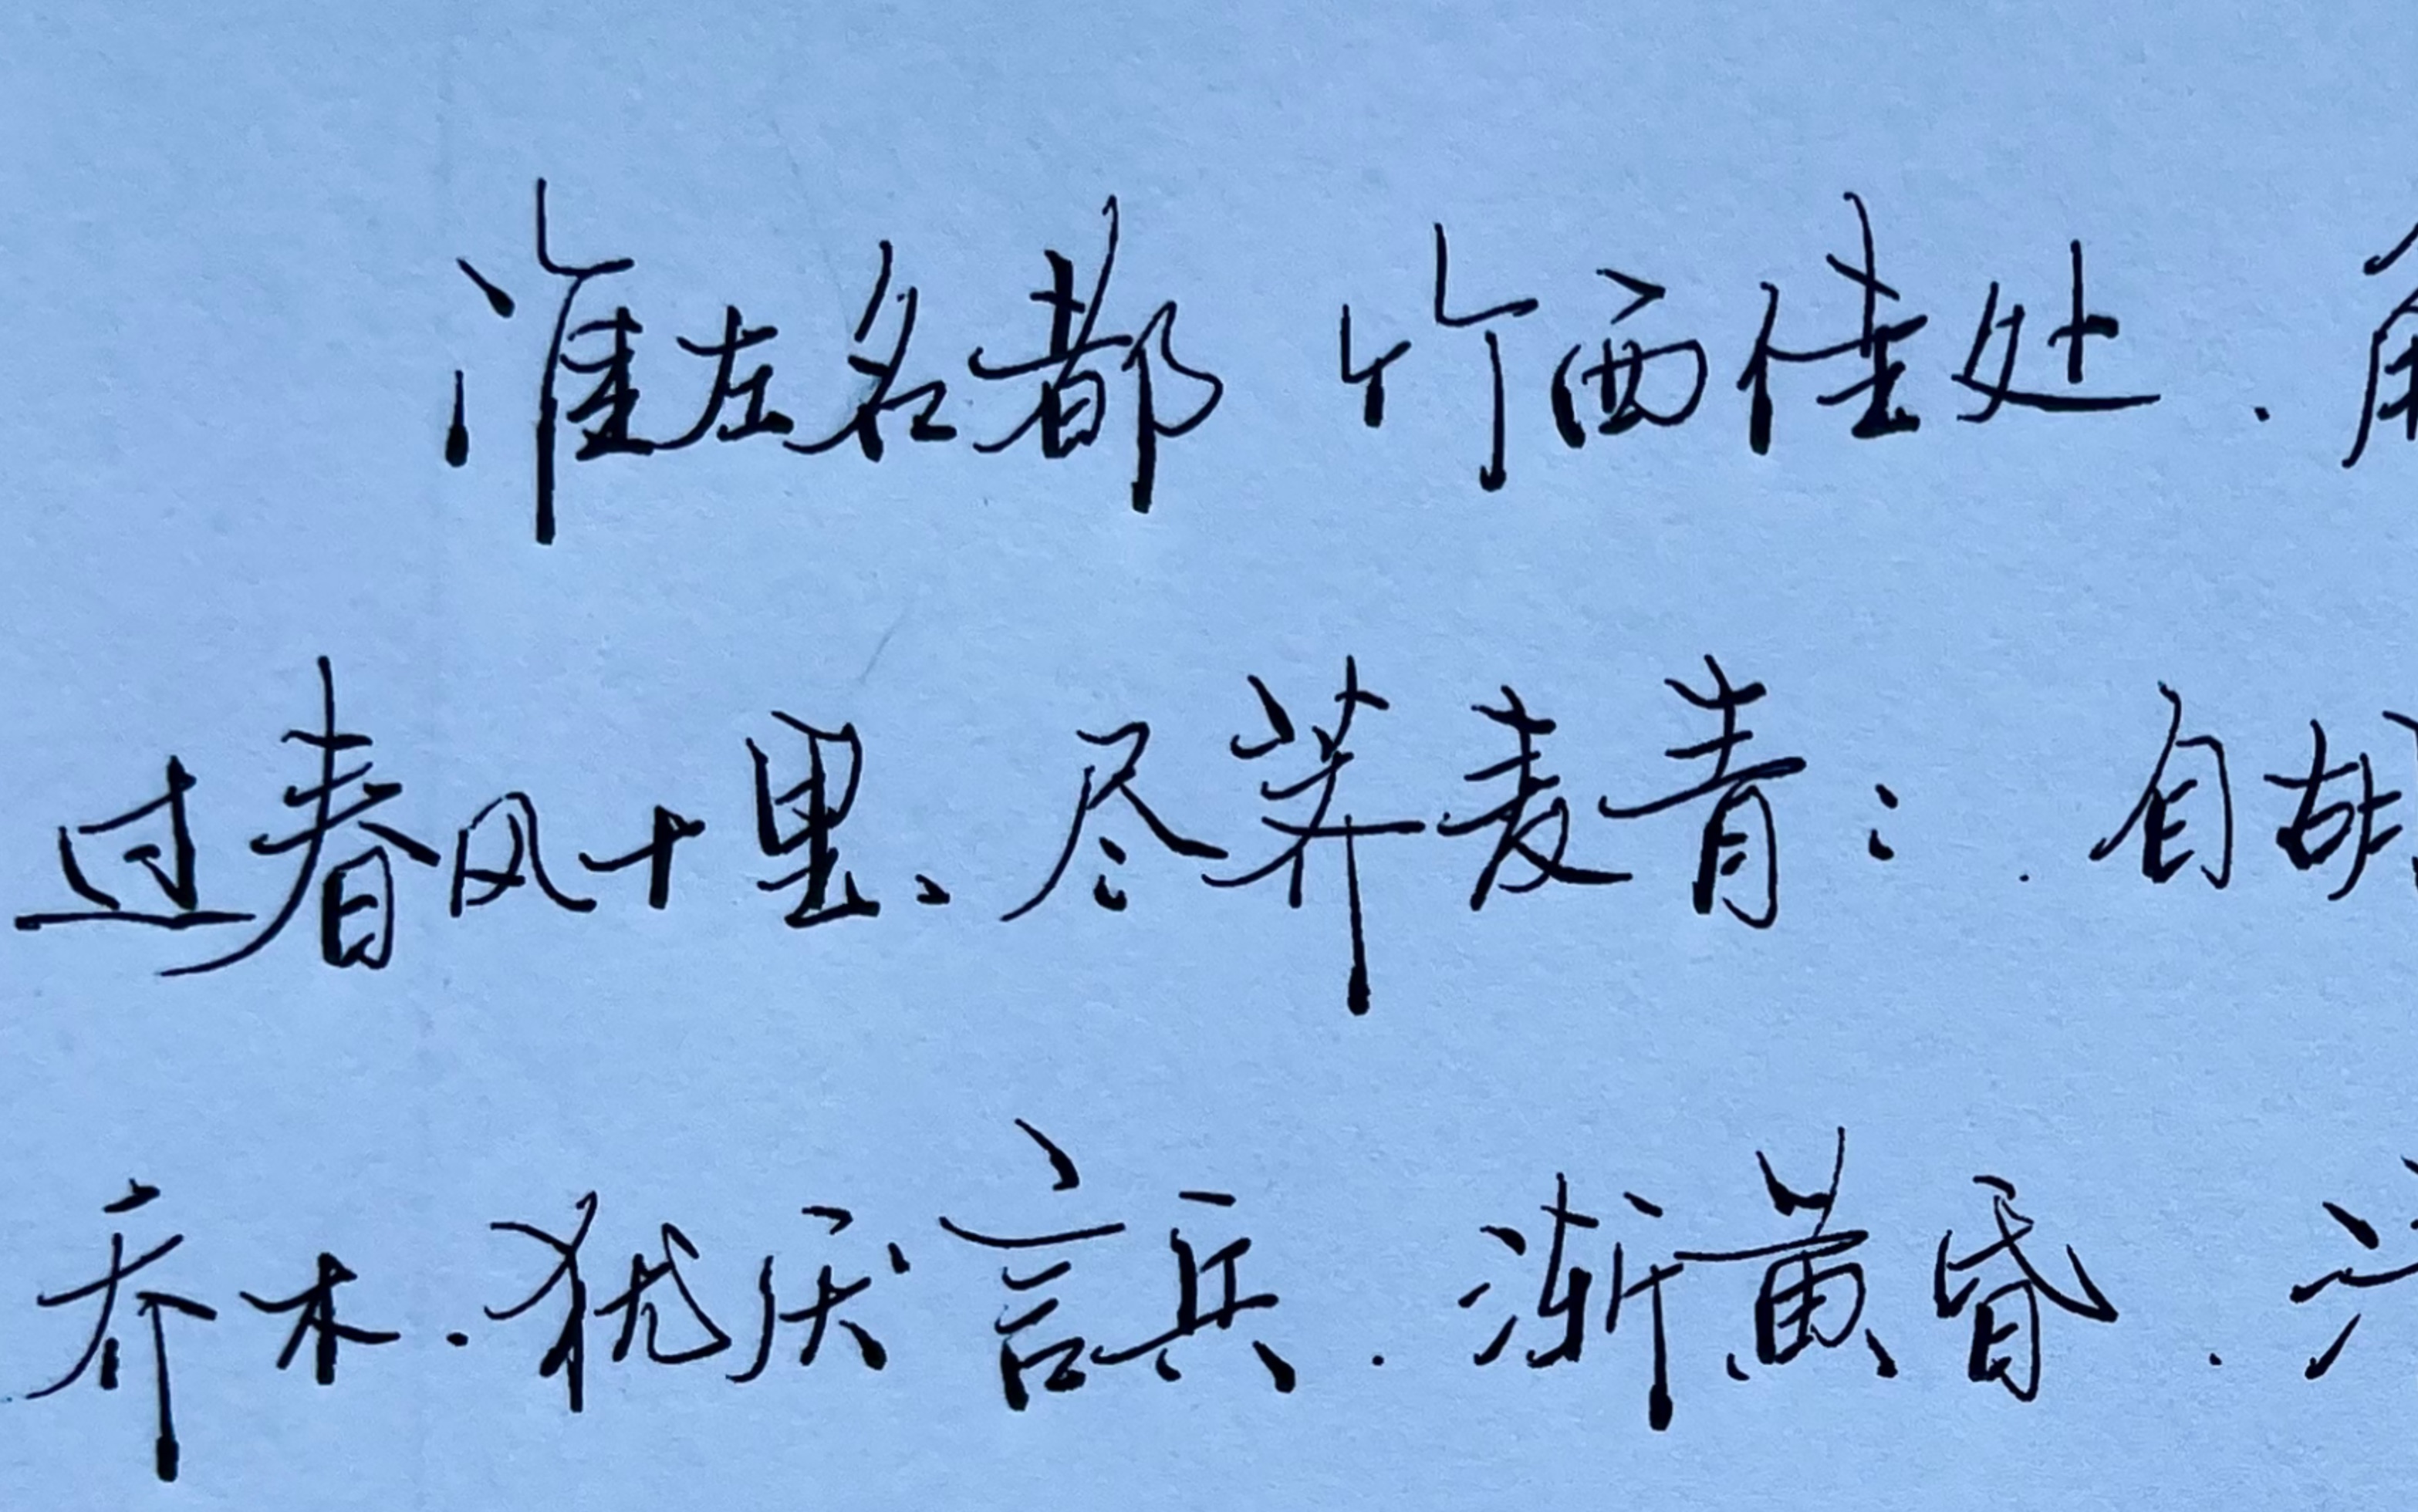 淮左名都 竹西佳处.
过春风十里、尽荠麦青:. 自胡
乔木.犹厌言兵.渐黄昏.